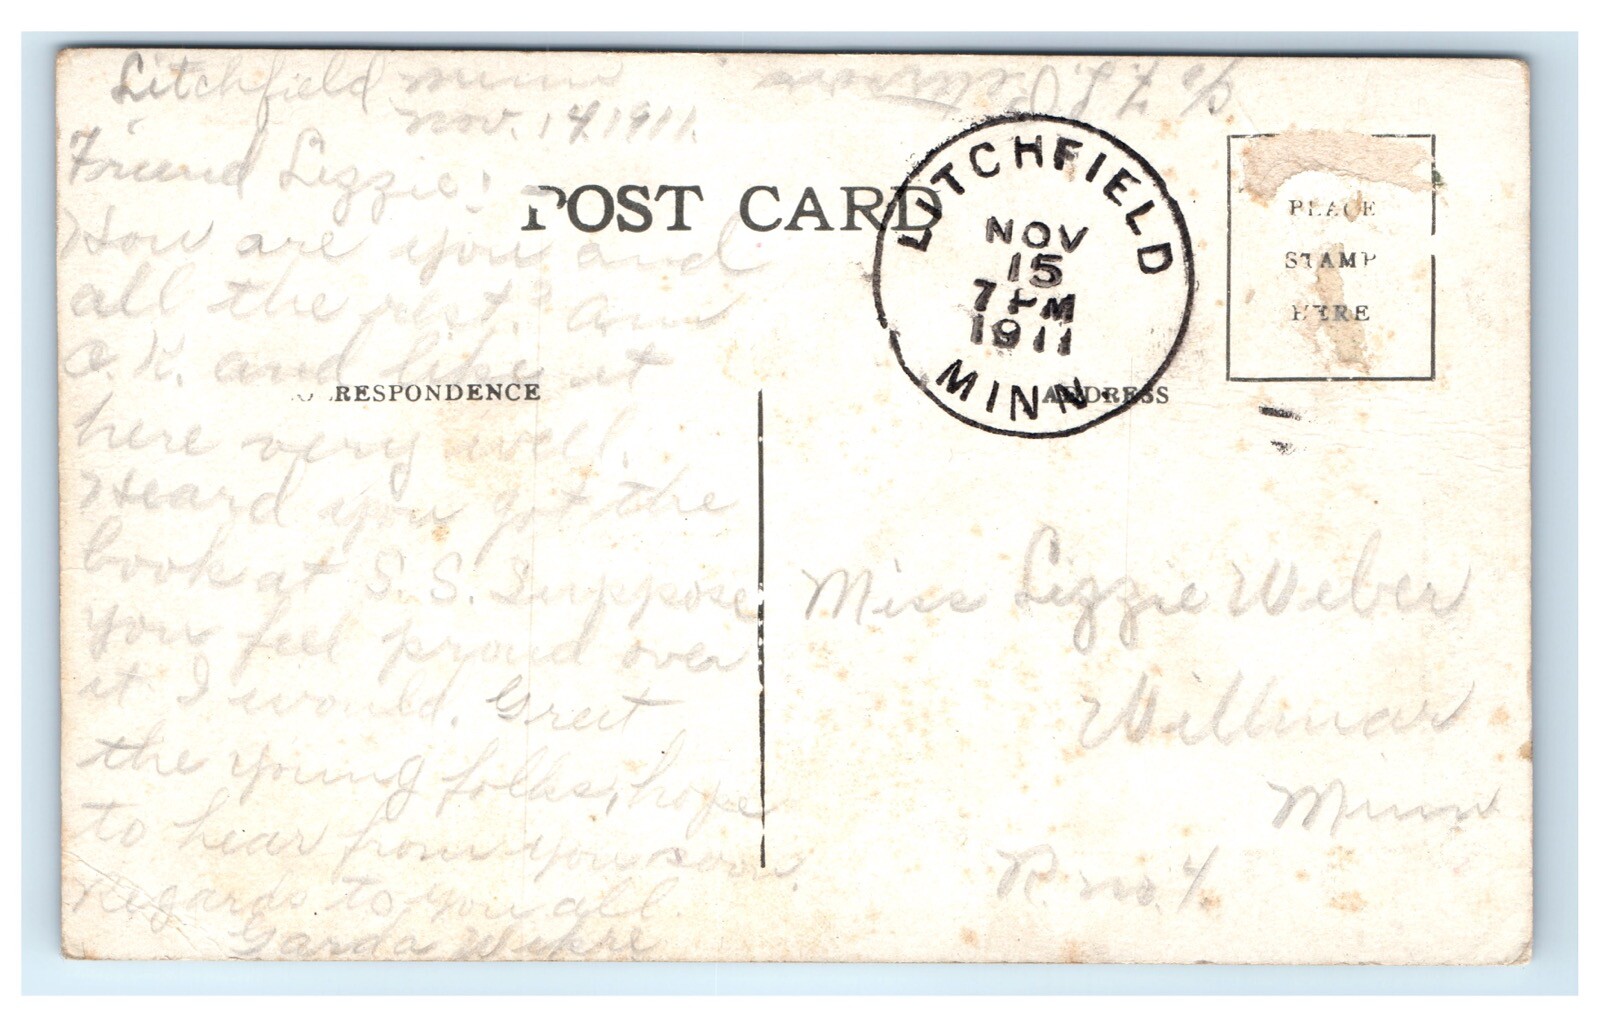 Litchfield Minn
Nov. 14 1911.
Friend Lizzie!
How are you and
all the rest? Am
O.K. and like it
here very well.
Heard you got the
book at S.S. Suppose
you feel proud over
it I would. Greet
the young folks, hope
to hear from you soon.
Regards to you all.
Garda
c/o F. L.
POST CARD
RESPONDENCE
ADDRESS
LITCHFIELD
NOV
15
7 PM
1911
MINN.
PLACE
STAMP
HERE
Miss Lizzie Weber
Willmar
Minn
R. no. 4.